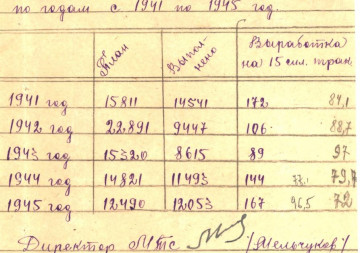 по годам с 1941 по 1945 год.
План Выполнено Выработка на 15 сил. трак.
1941 год 15811 14541 172 84,1
1942 год 22891 9447 106 88,7
1943 год 15320 8615 89 97
1944 год 14821 11493 144 79,7
1945 год 12490 12053 167 96,5 72
Директор МТС /Мельчуков/